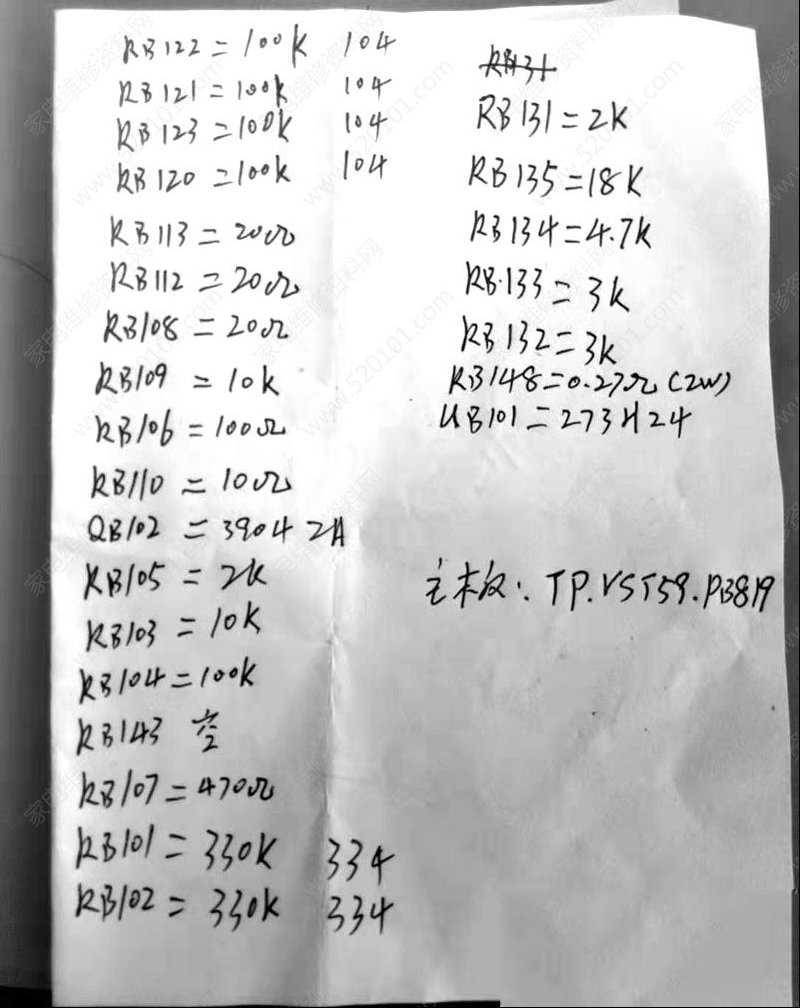 RB122=100K 104
RB121=100K 104
RB123=100K 104
RB120=100K 104
RB113=20Ω
RB112=20Ω
RB108=20Ω
RB109=10K
RB106=100Ω
RB110=10Ω
QB102=3904 2A
RB105=2K
RB103=10K
RB104=100K
RB143 空
RB107=470Ω
RB101=330K 334
RB102=330K 334
RB131
RB131=2K
RB135=18K
RB134=4.7K
RB.133=3K
RB132=3K
RB148=0.27Ω(2W)
UB101=273H24
主板:TP.VST59.PB819
家电维修资料网
www.520101.com